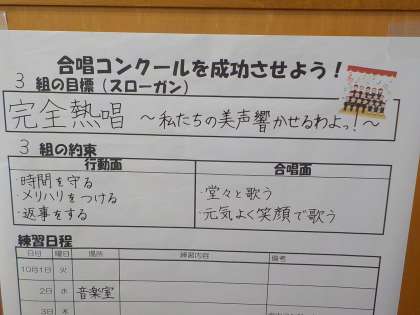 合唱コンクールを成功させよう！
3 組の目標（スローガン）
完全熱唱 ～私たちの美声響かせるわよっ！～
3 組の約束
行動面 合唱面
・時間を守る
・メリハリをつける
・返事をする
・堂々と歌う
・元気よく笑顔で歌う
練習日程
日付 曜日 場所 練習内容 備考
10月1日 火
2日 水 音楽室
3日 木